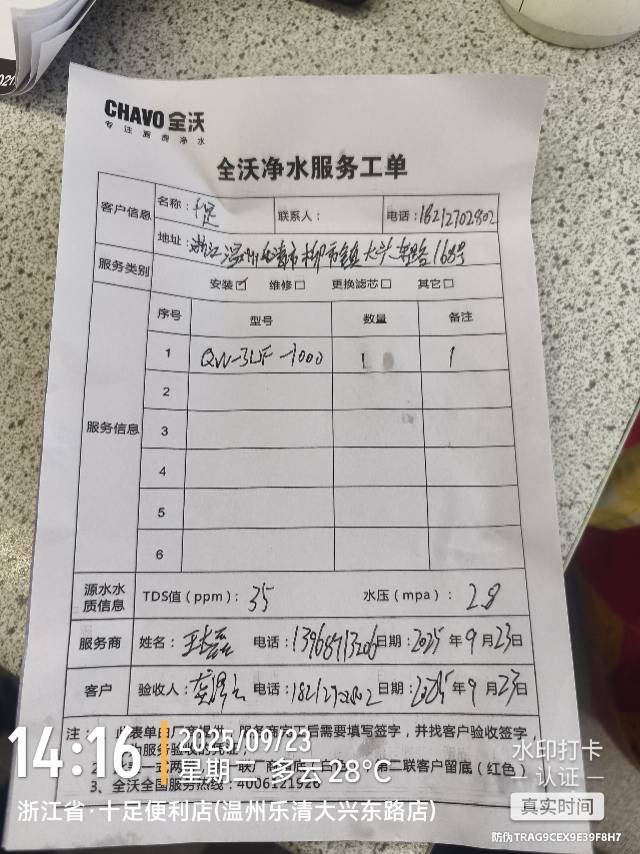 CHAVO 全沃
专注直滴净水
全沃净水服务工单
客户信息 名称：十足 联系人： 电话：18212702802
地址：浙江温州乐清市柳市镇大兴东路168号
服务类别 安装☑ 维修□ 更换滤芯□ 其它□
服务信息 序号 型号 数量 备注
1 QW-3UF-1000 1 1
2
3
4
5
6
源水水质信息 TDS值（ppm）：35 水压（mpa）：2.8
服务商 姓名： 电话：13968713206 日期：2025年9月23日
客户 验收人： 电话：18212702802 日期：2025年9月23日
注：1、此表单由厂商提供，服务商完工后需要填写签字，并找客户验收签字，
服务验收的凭证
联客户留底（红色）
3、全沃全国服务热线：4006121926
14:16
2025/09/23
星期二 多云 28℃
浙江省·十足便利店(温州乐清大兴东路店)
水印打卡
认证
真实时间
防伪TRAG9CEX9E39F8H7